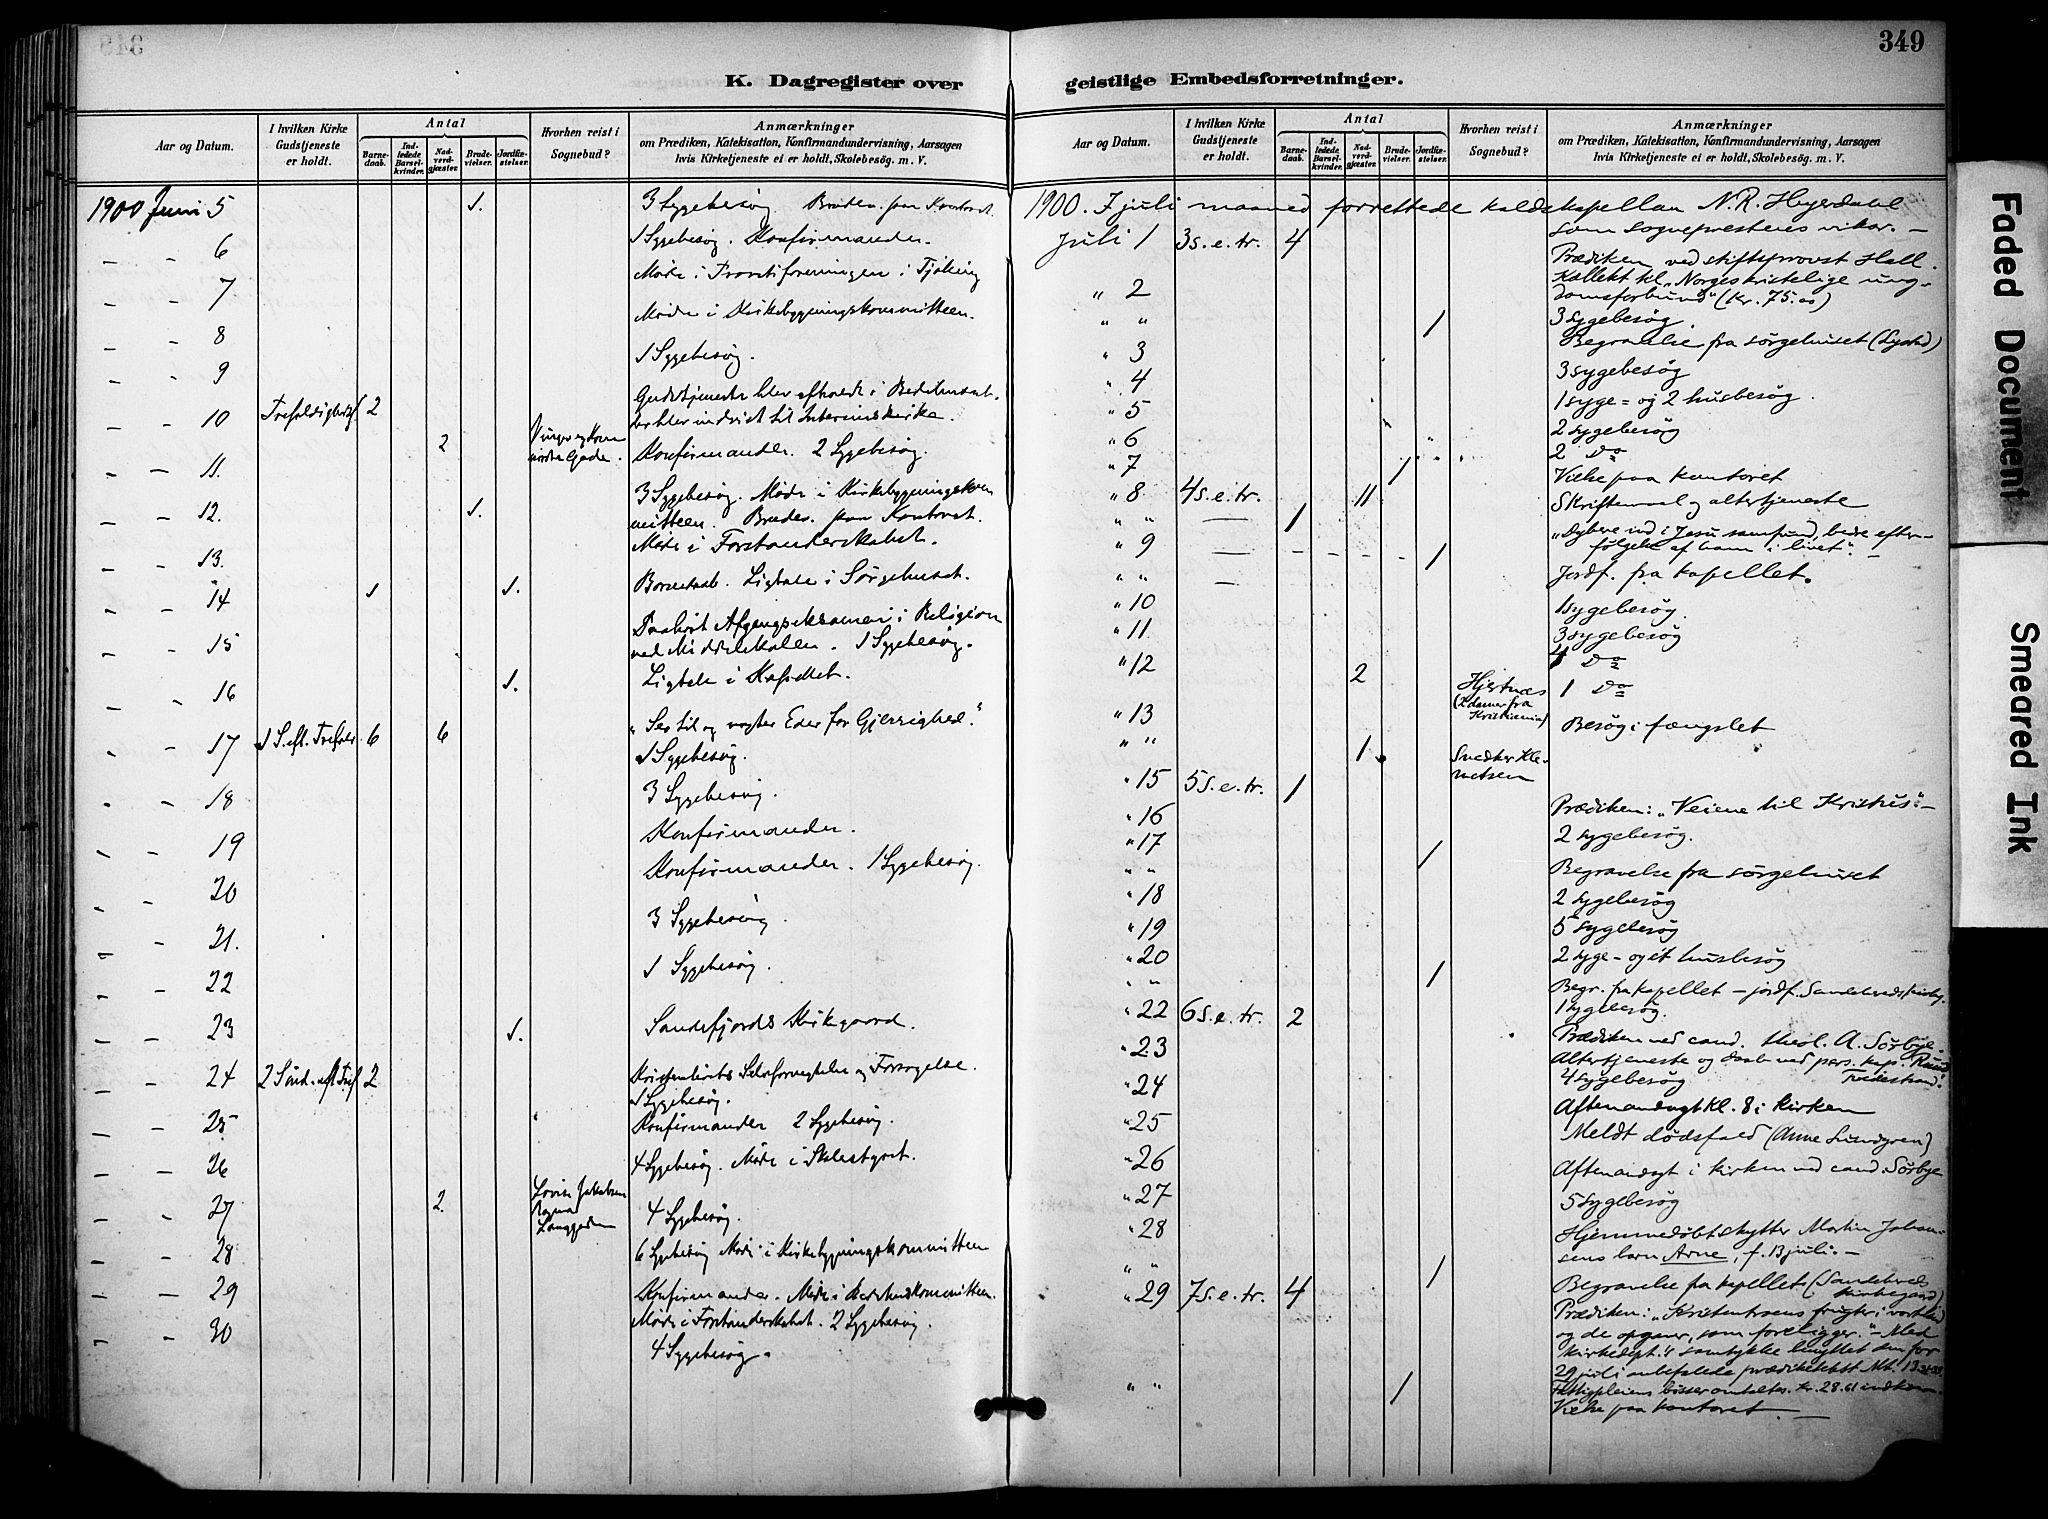 349
K. Dagregister over
Aar og Datum.
I hvilken Kirke Gudstjeneste er holdt.
Antal
Barnedaab.
Indledede Barselkvinder.
Nadverdgjæster.
Brudevielser.
Jordfæstelser.
Hvorhen reist i Sognebud?
Anmærkninger
om Prædiken, Katekisation, Konfirmandundervisning, Aarsagen
hvis Kirketjeneste ei er holdt, Skolebesøg. m. V.
1900 Juni 5 1. 3 Sygebesøg. Brudev. paa Kontoret.
" " 6 1 Sygebesøg. Konfirmander.
" " 7 Møde i Provstiforeningen i Tjølling
" " 8 Møde i Kirkebygningskommitteen.
" " 9 1 Sygebesøg.
" " 10 2 Gudstjeneste blev afholdt i Bedehuset,
der blev indviet til Interimskirke.
" " 11. 2 Konfirmander. 2 Sygebesøg.
" " 12. 1. 3 Sygebesøg. Møde i Kirkebygningskom
mitteen. Brudev. paa Kontoret.
" " 13. Møde i Forstanderskabet.
" " 14 1 1. Barnedaab. Ligtale i Sørgehuset.
" " 15 Paahørt Afgangseksamen i Religion
ved Middelskolen. 1 Sygebesøg.
" " 16 1. Ligtale i Kapellet.
" " 17 1 S. eft. Trefold. 6 6 "Se til og vogter Eder for Gjerrighed."
1 Sygebesøg.
" " 18 3 Sygebesøg.
" " 19 Konfirmander.
" " 20 Konfirmander. 1 Sygebesøg.
" " 21. 3 Sygebesøg
" " 22 1 Sygebesøg.
" " 23 1. Sandefjords Kirkegaard.
" " 24 2 Sønd. eft Tref 2 Kristenlivets Selvfornegtelse og Forsagelse.
1 Sygebesøg.
" " 25 Konfirmander 2 Sygebesøg.
" " 26 4 Sygebesøg. Møde i Skolestyret.
" " 27 2 4 Sygebesøg.
" " 28 6 Sygebesøg Møde i Kirkebygningskommitteen
" " 29 Konfirmander. Møde i
" " 30 Møde i Forstanderskabet. 2 Sygebesøg.
4 Sygebesøg.
349
geistlige Embedsforretninger.
Aar og Datum.
I hvilken Kirke Gudstjeneste er holdt.
Antal
Barnedaab.
Indledede Barselkvinder.
Nadverdgjæster.
Brudevielser.
Jordfæstelser.
Hvorhen reist i Sognebud?
Anmærkninger
om Prædiken, Katekisation, Konfirmandundervisning, Aarsagen
hvis Kirketjeneste ei er holdt, Skolebesøg. m. V.
1900. I juli maaned forrettede kaldskapellan N. R. Heyerdahl
som sogneprestens vikar. –
Juli 1 3 s. e. tr. 4 Prædiken ved stiftsprovst Hall.
Kollekt til "Norges kristelige ung-
domsforbund" (Kr. 75.00)
" 2 3 sygebesøg.
" " 1 Begravelse fra sørgehuset
" 3 3 sygebesøg
" 4 1 syge- og 2 husbesøg.
" 5 2 sygebesøg
" 6 2 Do
" 7 1 Vielse paa kontoret
" 8 4 s. e. tr. 11 Skriftemaal og altertjeneste
" " — 1 "Dybere ind i Jesu samfund, bedre efter-
følgelse af ham i livet".
" 9 — 1 Jordf. fra kapellet.
" " —
" 10 1 sygebesøg.
" 11. 3 sygebesøg
" 12 4 Do
2 Hjertnæs (2 damer fra Kristiania) 1 Do
" 13 Besøg i fængslet
" " 1 Snedker Kle-
metsen
" 15 5 s. e. tr. 1 Prædiken: "Veiene til Kristus". –
" 16 2 sygebesøg.
" 17
" " 1 Begravelse fra sørgehuset
" 18 2 sygebesøg
" 19 5 sygebesøg
" 20 2 syge- og ét husbesøg
" " 1 Begr. fra kapellet – jordf.
1 sygebesøg.
" 22 6 s. e. tr. 2 Prædiken ved cand. theol. A. Sørbye.
Altertjeneste og daab ved pers. kap.
Tvedestrand.
" 23 4 sygebesøg
" 24 Aftenandagt kl. 8 i kirken
" 25 Meldt dødsfald (Anne Lundgren)
" 26 Aftenandagt i kirken ved cand. Sørbye
" 27 5 sygebesøg
" 28 Hjemmedøbt skytter Martin Johan-
sens barn Arne, f. 13 juli. –
" " 1 Begravelse fra kapellet (Sandeherreds kirkegaard)
" 29 7 s. e. tr. 4 Prædiken: "Kristentroens frugter i vort liv
og de opgaver, som foreligger." – Med
kirkedept.s samtykke benyttet den for
29 juli anbefalede prædiketekst Mt. 13
Fattigpleiens bøsser omtaltes. Kr. 28.61 indkom.
" " 1 Vielse paa kontoret. –
Faded Document
Smeared Ink